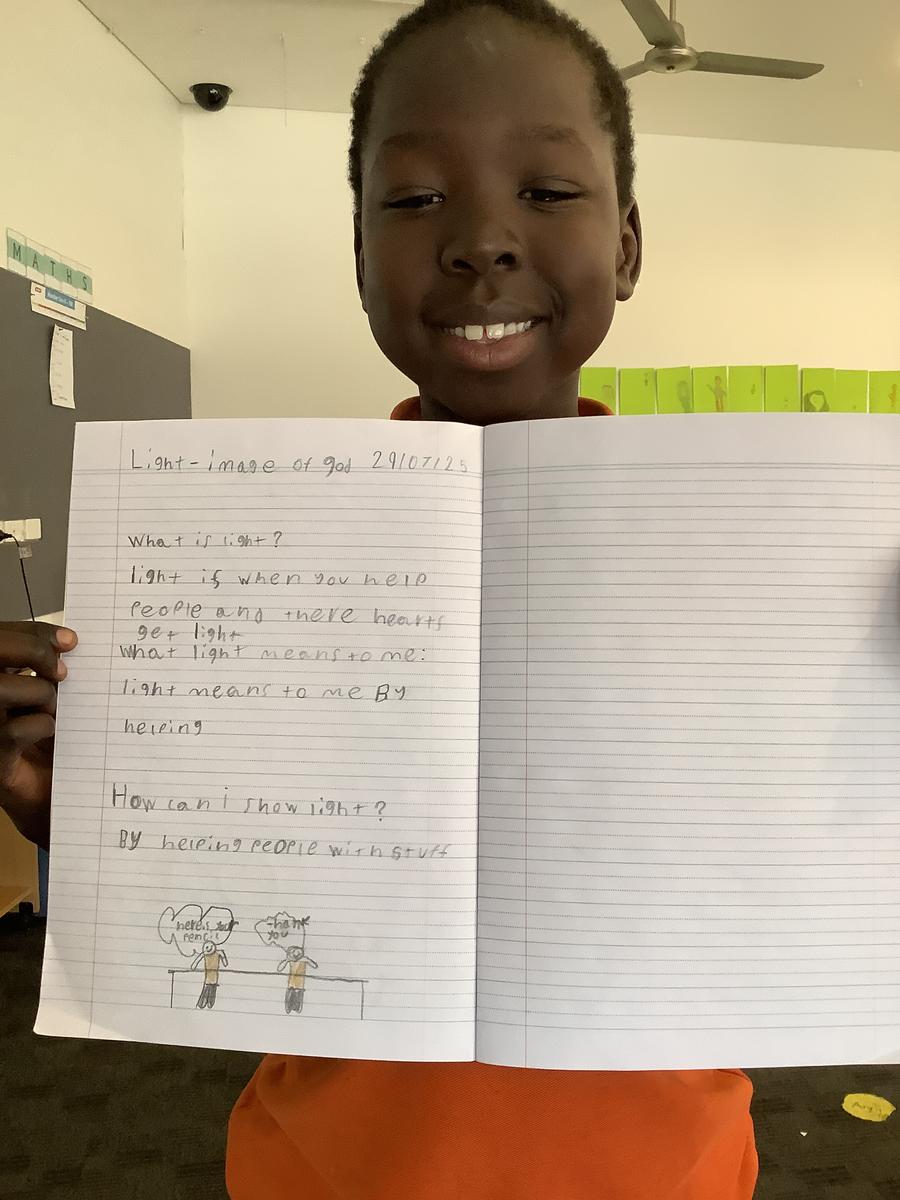 MATHS
Light-image of god 29/07/25
What is light?
light is when you help
people and there hearts
get light
What light means to me:
light means to me By
helping
How can i show light?
By helping people with stuff
here's your
pencil
thank
you